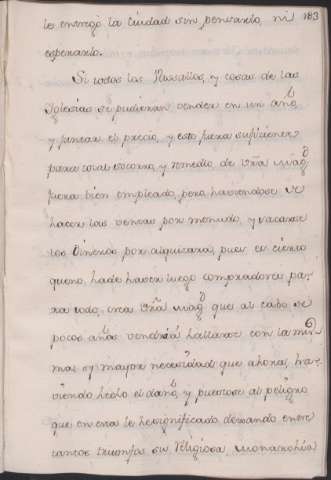 le entregó la Ciudad sin pensarlo, ni 183
esperarlo.
Si todos los Vassallos, y cosas de las
Iglesias se pudieran vender en un año,
y juntar el precio, y esto fuera suficiente
para total socorro, y remedio de Vrã Magd
fuera bien empleado, pero haviendose de
hacer las ventas por menudo, y sacarse
los Dineros por
que no, hade haver luego compradores pa-
ra todo, crea Vrã Magd que al cabo de
pocos años vendrá hallarse con la mis-
ma, y mayor necesidad que ahora, ha-
viendo hecho el daño, y puestose al peligro
que en esta le he significado, dexando entre
tantos triunfos su Religiosa Monarchia